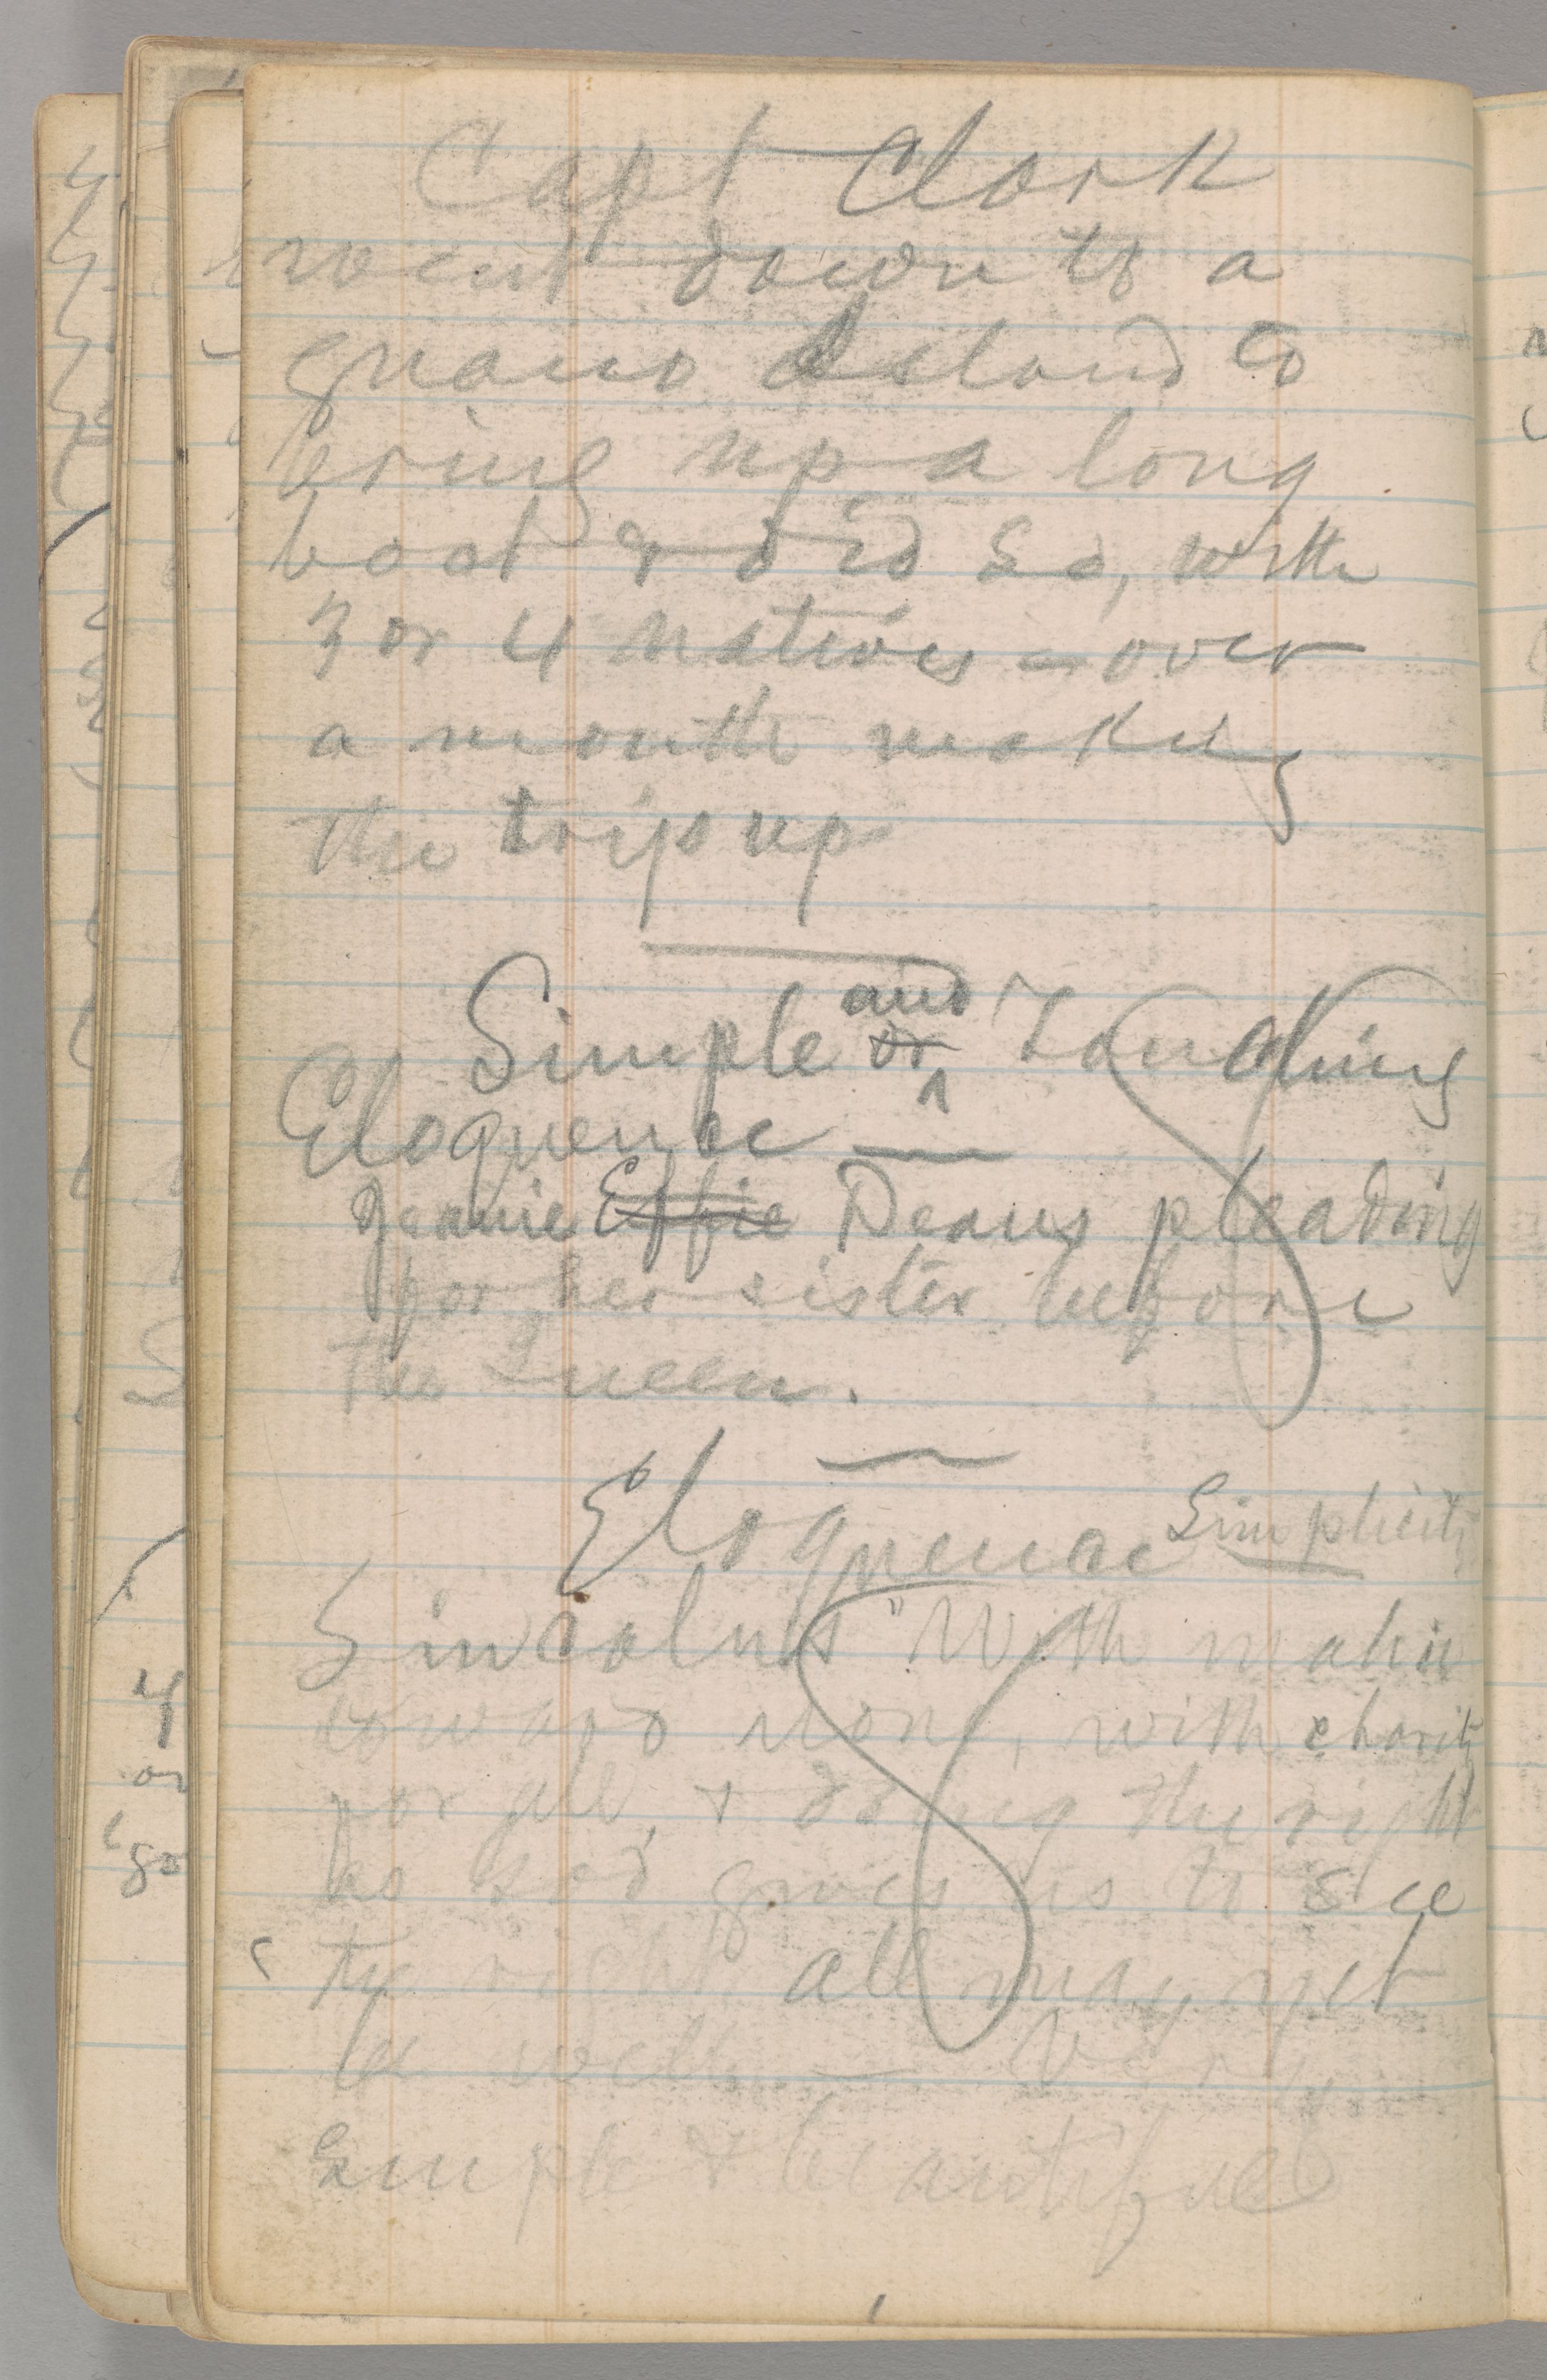 Capt Clark
went down to a
guano Island to
bring up a long
boat & did so, with
3 or 4 natives — over
a month making
the trip up
Simple and or Touching
Eloquence —
Jeanie Effie Deans pleading
for her sister before
the Queen.
Eloquence Simplicity
Lincoln's "With malice
toward none, with charity
for all, & doing the right
as God gives us to see
the right all may yet
be well — Very
simple & beautiful